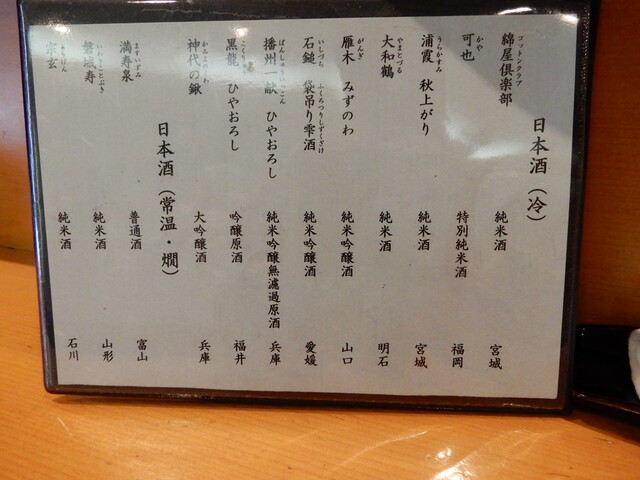 日本酒(冷)
綿屋倶楽部 コットンクラブ 純米酒 宮城
可也 かや 特別純米酒 福岡
浦霞 うらかすみ 秋上がり 純米酒 宮城
大和鶴 やまとづる 純米酒 明石
雁木 がんぎ みずのわ 純米吟醸酒 山口
石鎚 いしづち 袋吊り雫酒 ふくろつりしずくざけ 純米吟醸酒 愛媛
播州一献 ばんしゅういっこん ひやおろし 純米吟醸無濾過原酒 兵庫
黒龍 こくりゅう ひやおろし 吟醸原酒 福井
神代の鍬 大吟醸酒 兵庫
日本酒(常温・燗)
満寿泉 ますいずみ 普通酒 富山
磐城寿 いわきことぶき 純米酒 山形
宗玄 そうげん 純米酒 石川